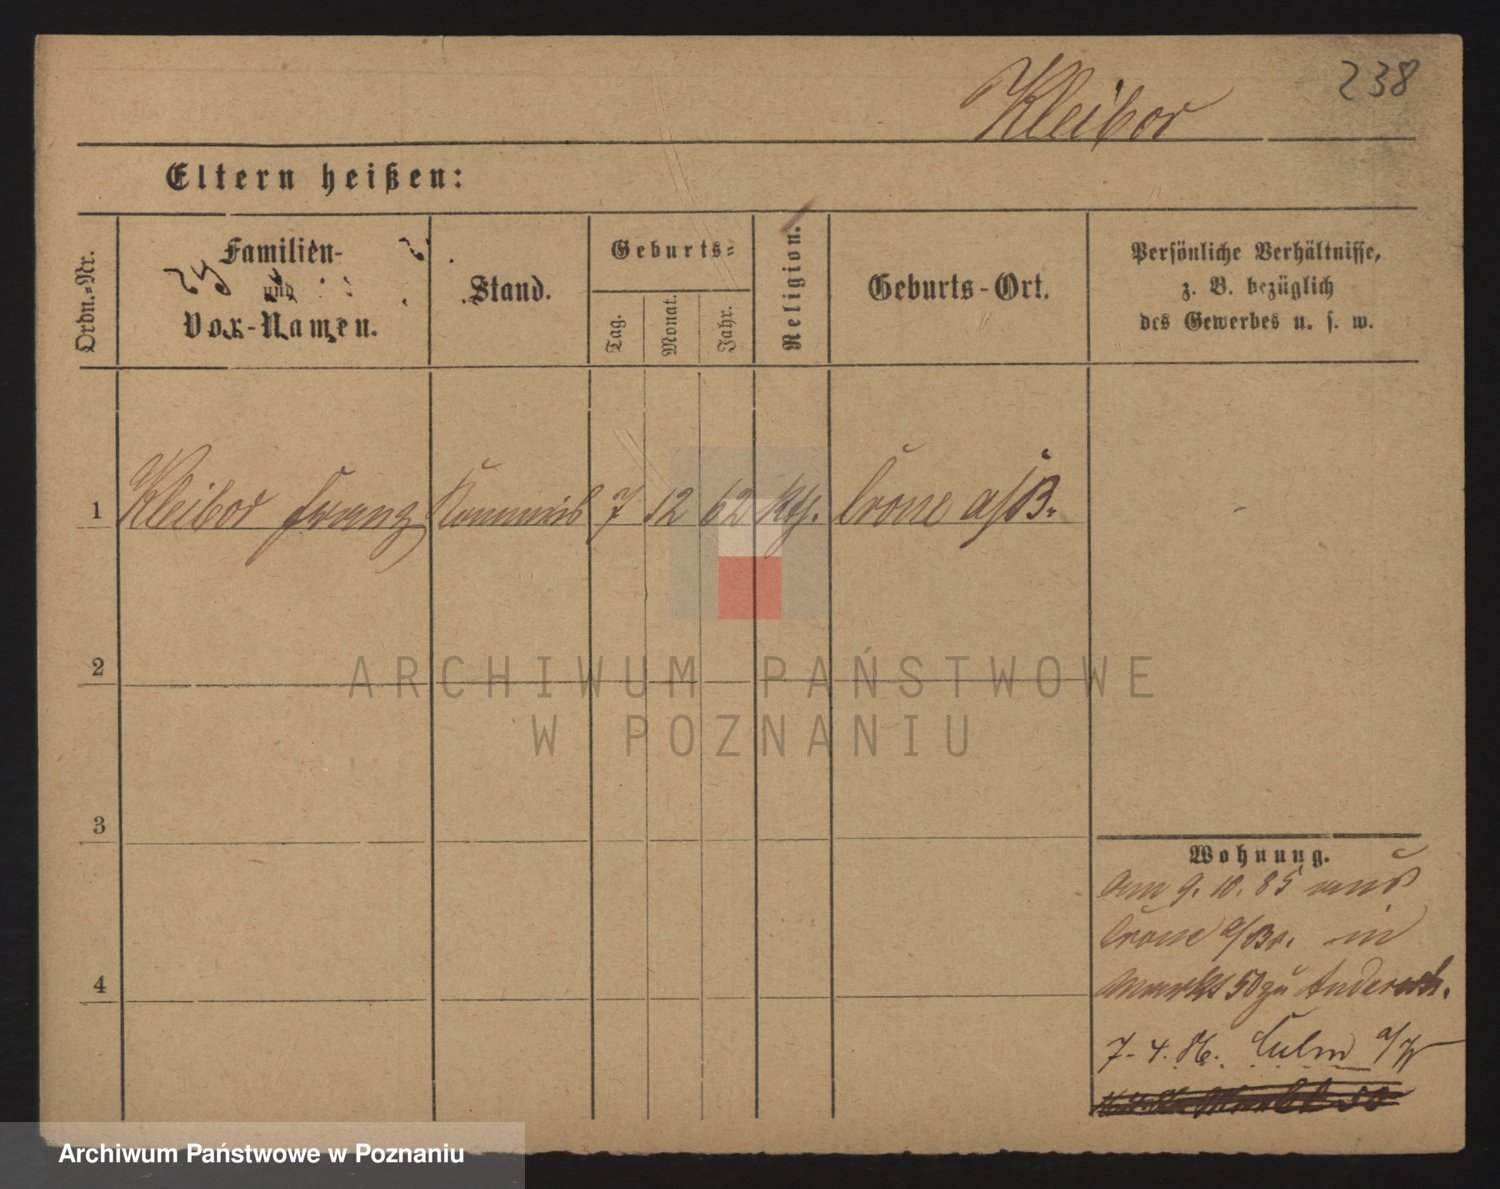 238
Kleibor
Eltern heißen:
Ordn.-Nr.
Familien-
und
Vor-Namen.
Stand.
Geburts-
Tag.
Monat.
Jahr.
Religion.
Geburts-Ort.
Persönliche Verhältnisse,
z. B. bezüglich
des Gewerbes u. s. w.
1 Kleibor Franz Kommis 7 12 62 kth. Crone a/B.
2
3
4
Wohnung.
am 9. 10. 85 aus
Crone a/Br. in
Markt 50 zu
7. 4. 86. Culm a/W
ARCHIWUM PAŃSTWOWE
W POZNANIU
Archiwum Państwowe w Poznaniu